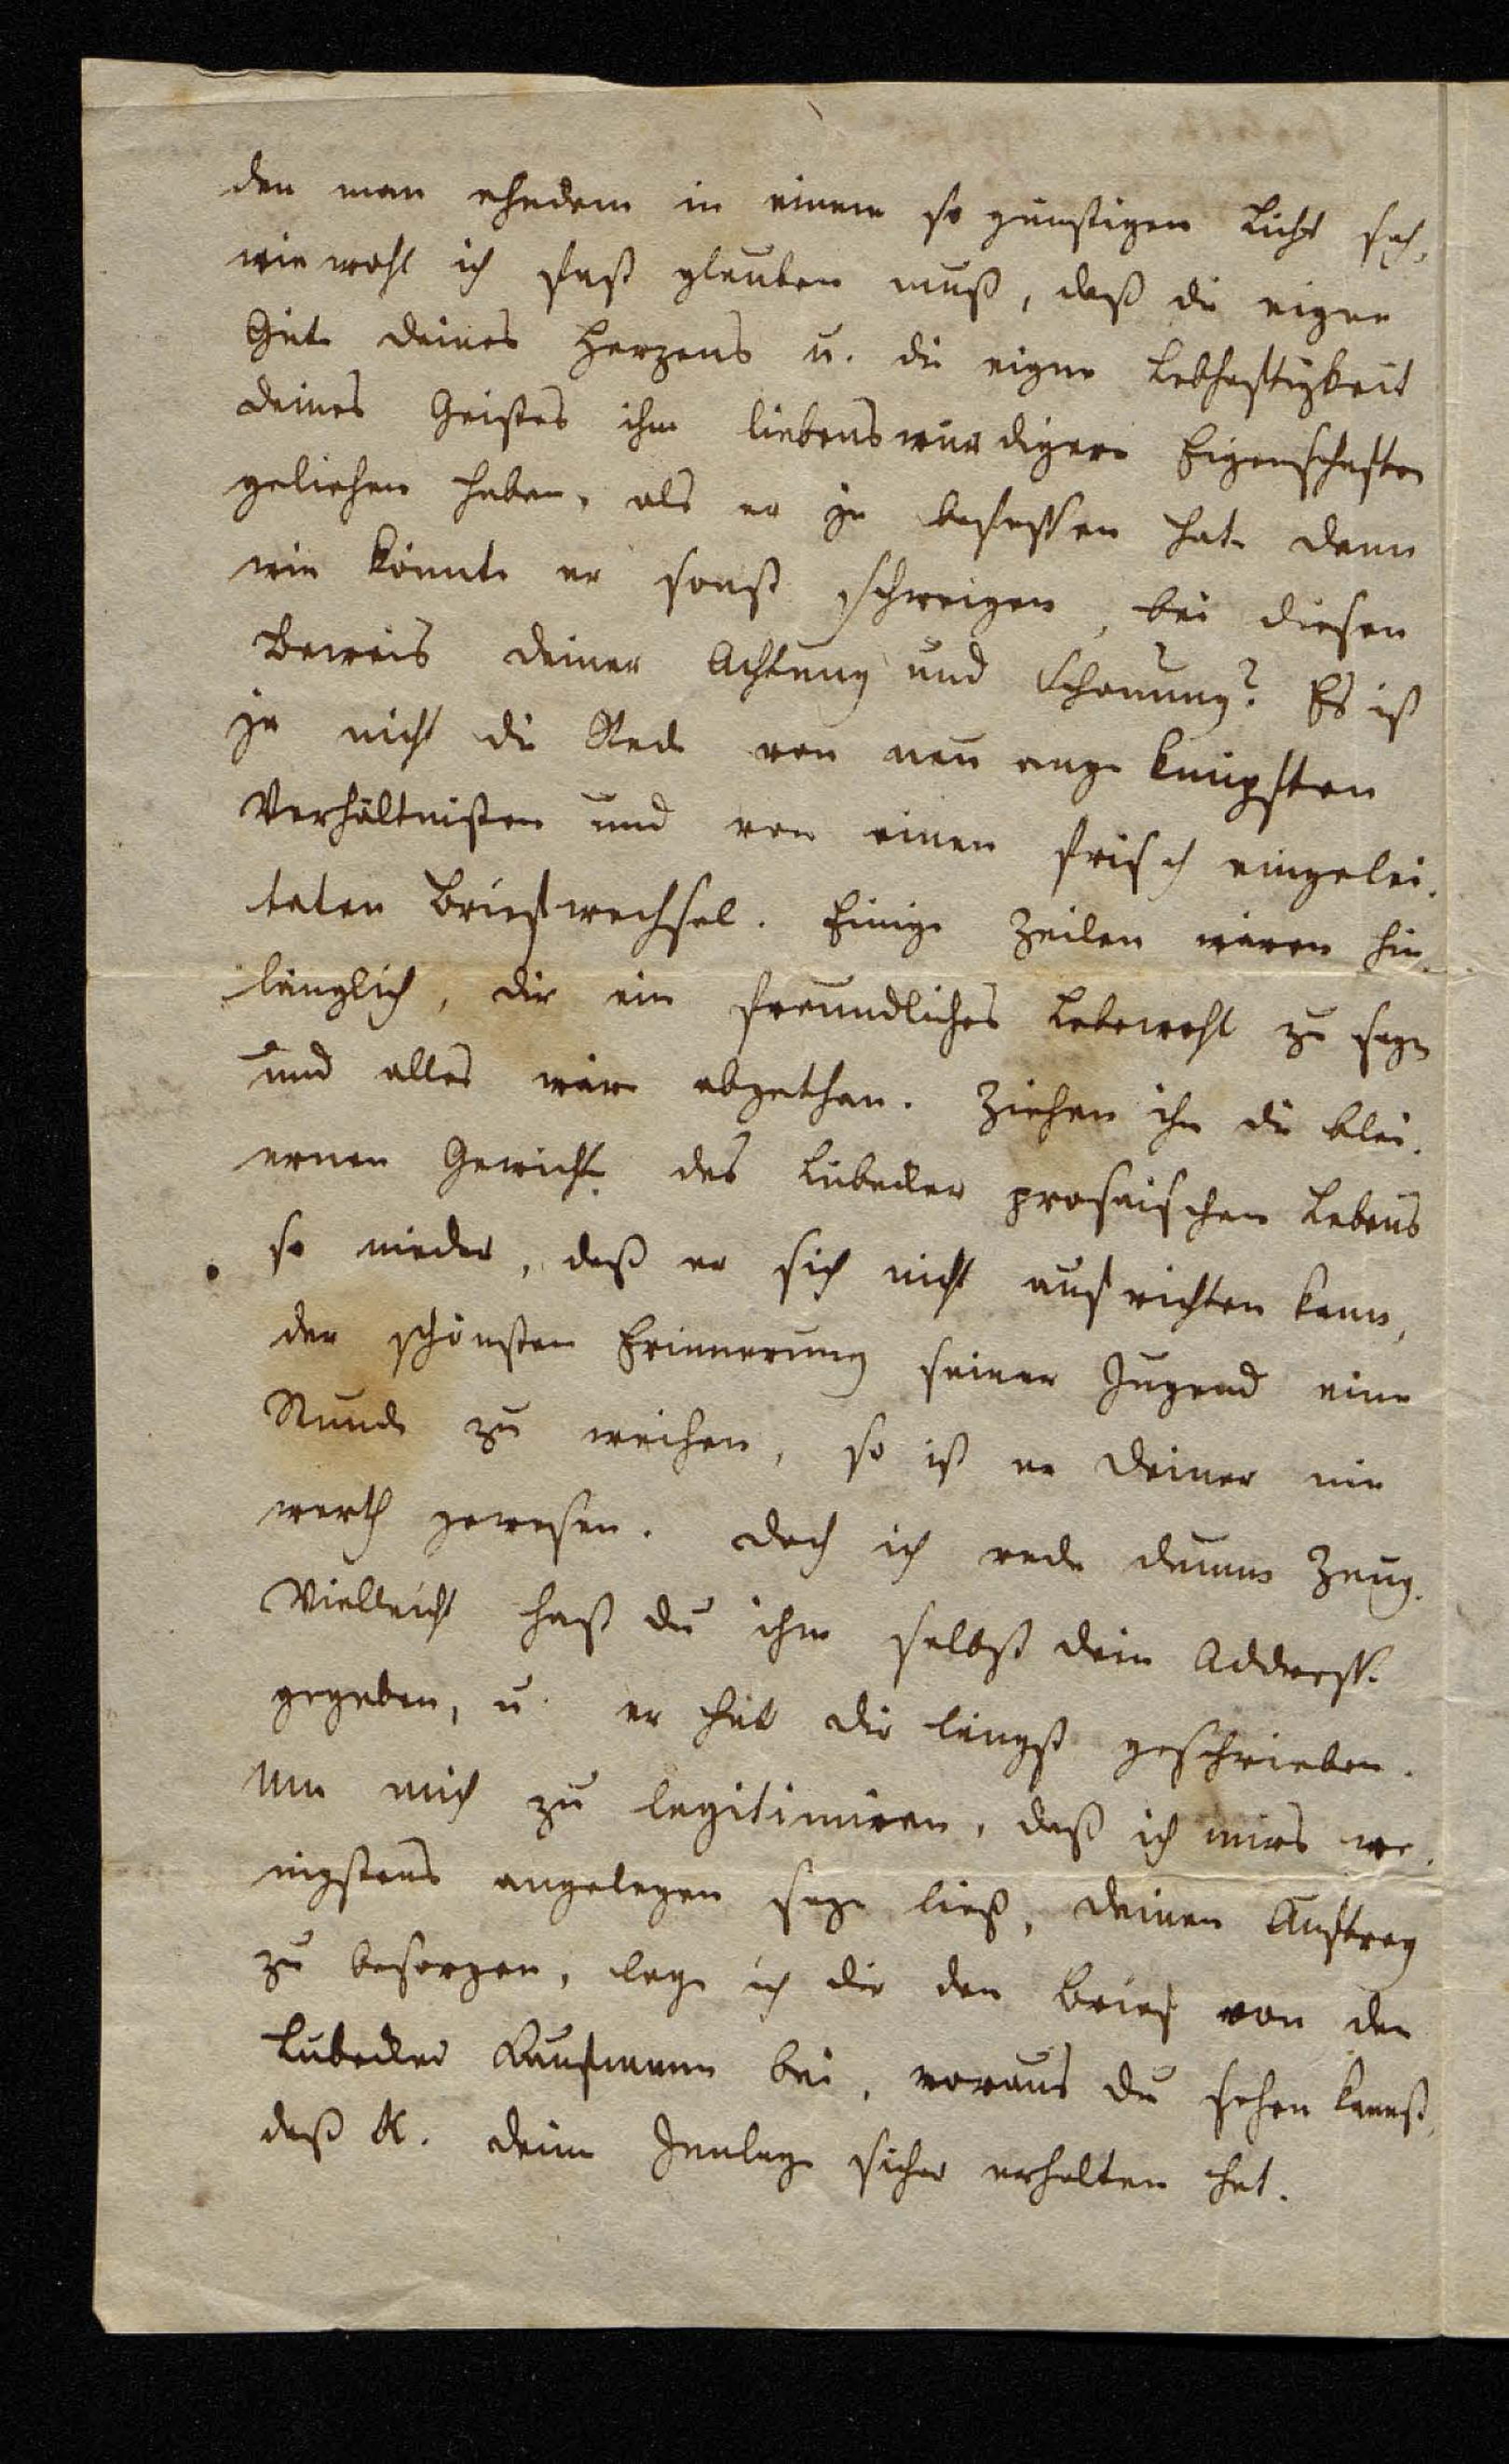 den man ehedem in einem so günstigen Licht sah,
wiewohl ich fast glauben muß, daß die eigne
Güte deines Herzens u. die eigne Lebhaftigkeit
deines Geistes ihm liebenswürdigere Eigenschaften
geliehen haben, als er je besessen hat. denn
wie könnte er sonst schweigen, bei diesen
Beweis deiner Achtung und Schonung? Es ist
ja nicht die Rede von neu angeknüpften
Verhältnißen und von einen frisch eingelei-
teten Briefwechsel. Einige Zeilen wären hin-
länglich, dir ein freundliches Lebewohl zu sagen
und alles wäre abgethan. Ziehen ihn die blei-
ernen Gewichte des Lübecker prosaischen Lebens
so nieder, daß er sich nicht aufrichten kann,
der schönsten Erinnerung seiner Jugend eine
Stunde zu weihen, so ist er deiner nie
werth gewesen. doch ich rede dummes Zeug.
Vielleicht hast du ihm selbst dein Addresse
gegeben, u. er hat dir längst geschrieben.
Um mich zu legitimiren, daß ich mirs we-
nigstens angelegen seyn ließ, deinen Auftrag
zu besorgen, lege ich dir den Brief von den
Lübecker Kaufmann bei, woraus du sehen kannst,
daß K. deine Inlage sicher erhalten hat.